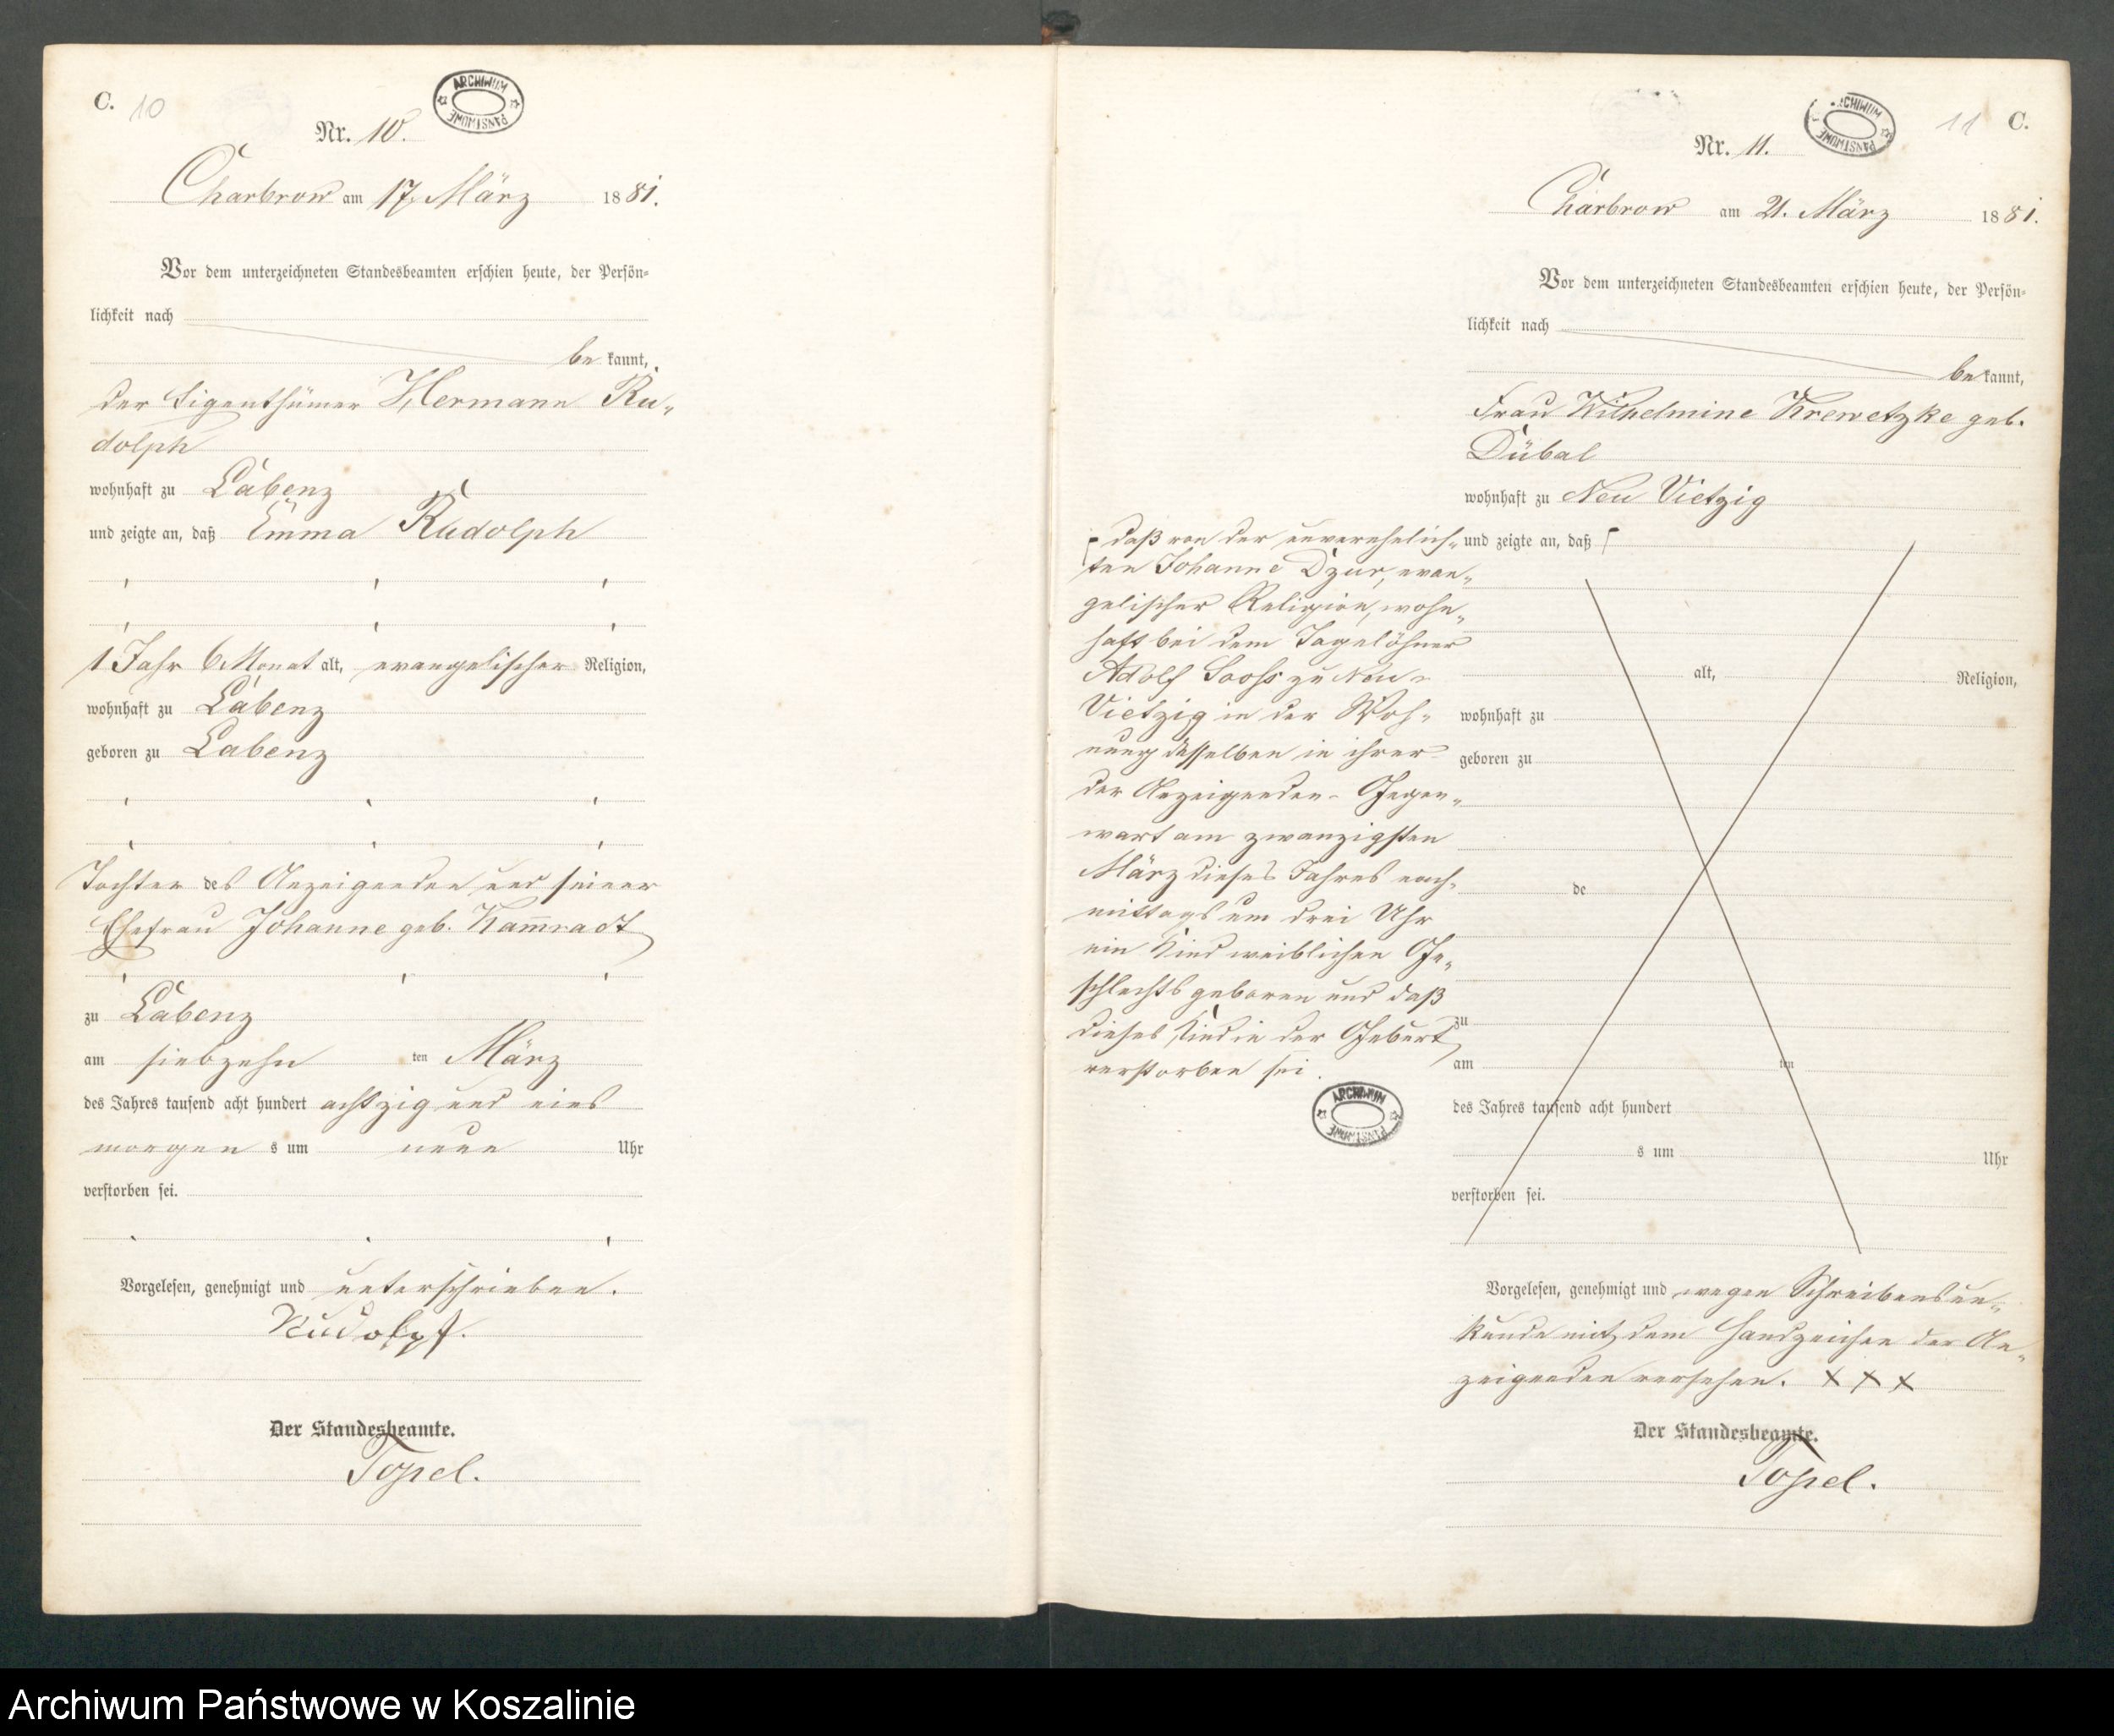 C. 10
ARCHIWUM PAŃSTWOWE
Nr. 10.
Charbrow am 17. März 1881.
Vor dem unterzeichneten Standesbeamten erschien heute, der Persön-
lichkeit nach
be kannt,
der Eigenthümer Hermann Ru-
dolph
wohnhaft zu Labenz
und zeigte an, daß Emma Rudolph
1 Jahr 6 Monat alt, evangelischer Religion,
wohnhaft zu Labenz
geboren zu Labenz
Tochter des Anzeigenden und seiner
Ehefrau Johanne geb. Kam̅radt
zu Labenz
am siebzehn ten März
des Jahres tausend acht hundert achtzig und eins
morgen s um neun Uhr
verstorben sei.
Vorgelesen, genehmigt und unterschrieben.
Rudolph.
Der Standesbeamte.
Topel.
11 C.
ARCHIWUM PAŃSTWOWE
Nr. 11.
Charbrow am 21. März 1881.
Vor dem unterzeichneten Standesbeamten erschien heute, der Persön-
lichkeit nach
be kannt,
Frau Wilhelmine Krewetzke geb.
Dübal
wohnhaft zu Neu Vietzig
und zeigte an, daß
daß von der unverehelich-
ten Johanne Dzur, evan-
gelischer Religion, wohn-
haft bei dem Tagelöhner
Adolf Sooss zu Neu-
Vietzig in der Woh-
nung desselben in ihrer
der Anzeigenden- Gegen-
wart am zwanzigsten
März dieses Jahres nach-
mittags um drei Uhr
ein Kind weiblichen Ge-
schlechts geboren und daß
dieses Kind in der Geburt
verstorben sei.
ARCHIWUM PAŃSTWOWE
alt, Religion,
wohnhaft zu
geboren zu
de
zu
am ten
des Jahres tausend acht hundert
s um Uhr
verstorben sei.
Vorgelesen, genehmigt und wegen Schreibensun-
kunde mit dem Handzeichen der An-
zeigenden versehen. XXX
Der Standesbeamte.
Topel.
Archiwum Państwowe w Koszalinie